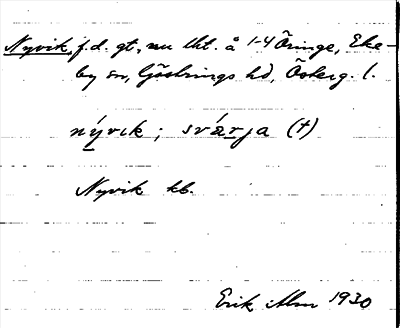 Nyvik, f.d. gt., nu lht. å 1-4 Öringe, Eke-
by sn, Göstrings hd, Österg. l.
nývik; svárja (†)
Nyvik kb.
Erik Alm 1930